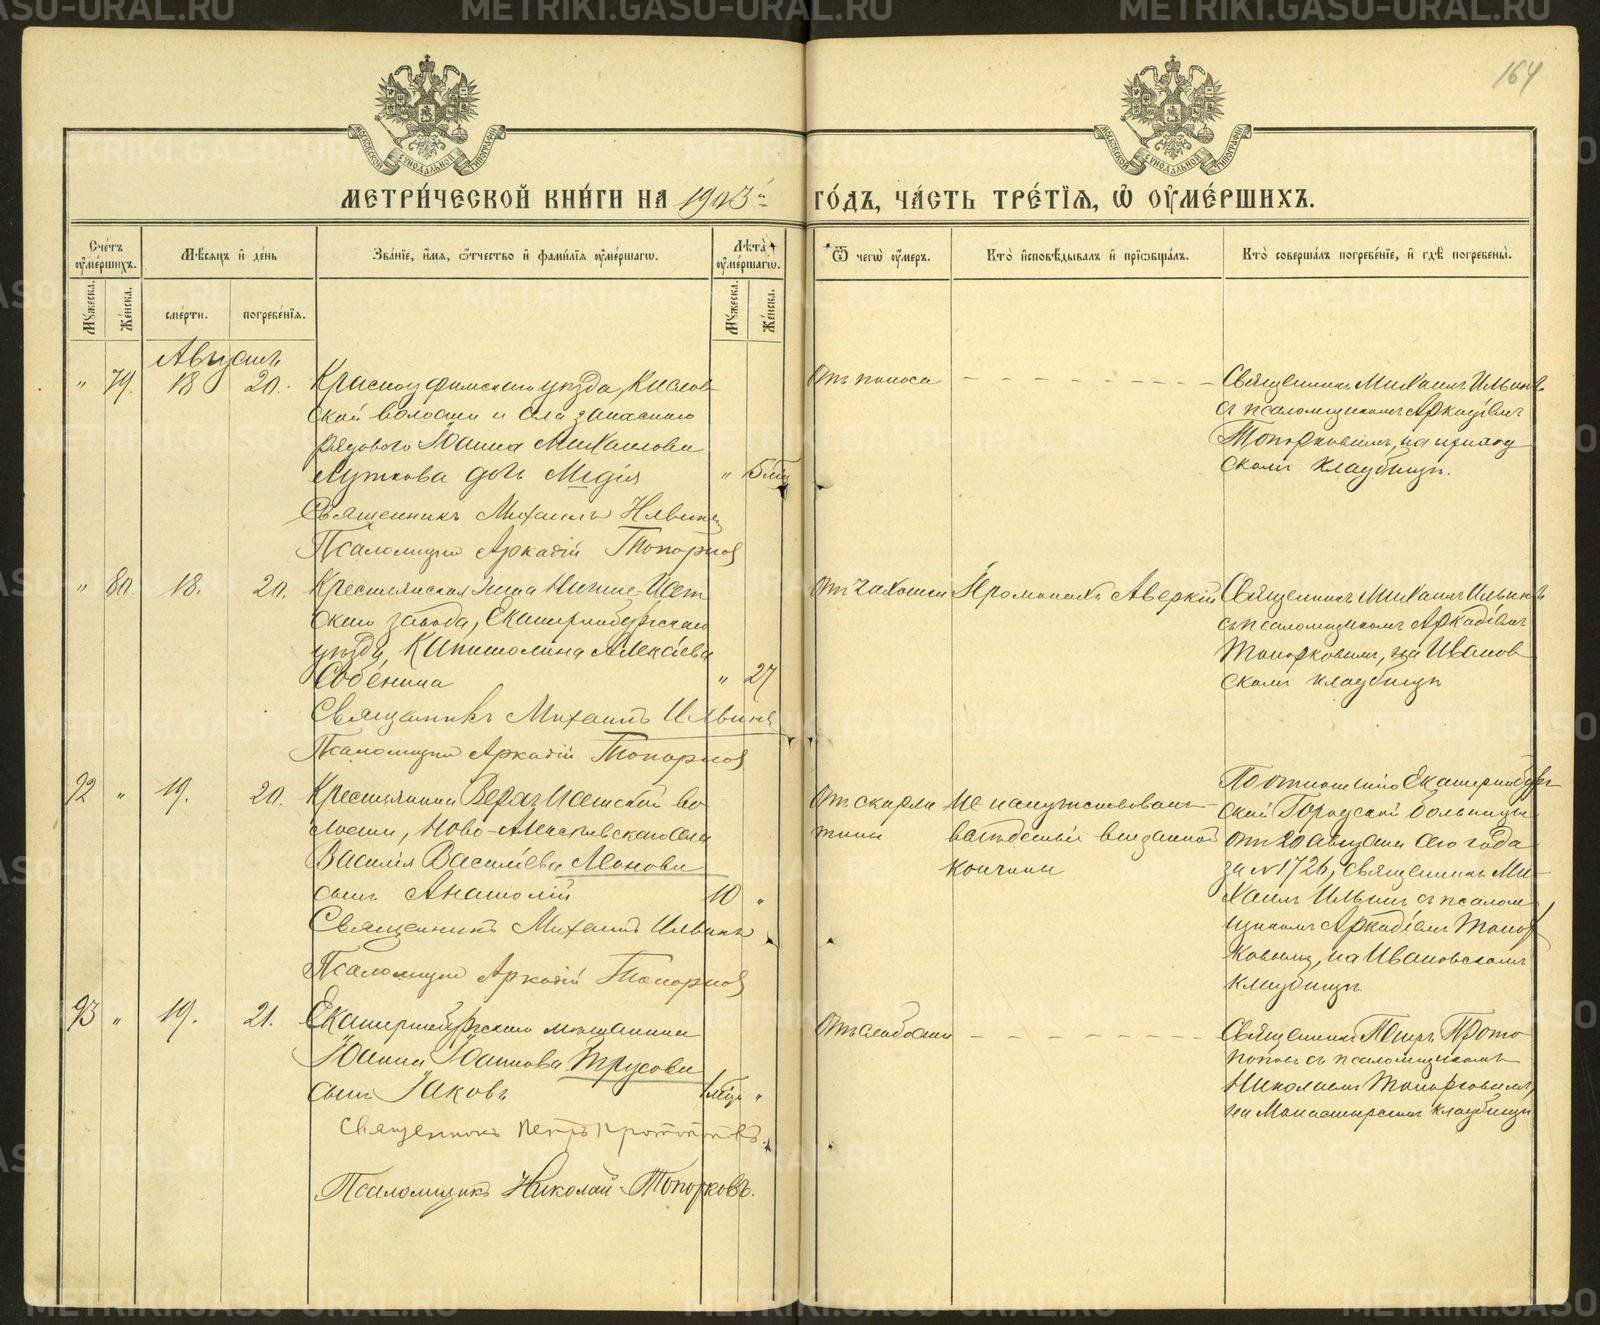 164
МЕТРИ́ЧЕСКОЙ КНИ́ГИ НА 1903й ГО́ДЪ, ЧА́СТЬ ТРЕ́ТІѦ, Ѡ҆ ОУ҆МЕ́РШИХЪ.
Сче́тъ оу҆ме́ршихъ.
Мѣ́сѧцъ и҆ де́нь
Зва́ніе, и҆́мѧ, ѻ҆́тчество и҆ фами́лїѧ оу҆ме́ршагѡ.
Лѣ́та оу҆ме́ршагѡ.
Ѿ чегѡ̀ оу҆́меръ.
Кто̀ и҆сповѣ́дывалъ и҆ прїѡбща́лъ.
Кто̀ соверша́лъ погребе́нїе, и҆ гдѣ̀ погребены̀.
Мꙋ́жеска.
Же́нска.
сме́рти.
погребе́нїѧ.
Мꙋ́жеска.
Же́нска.
Августъ
" 79. 18 20. Красноуфимскаго уѣзда, Кислов
ской волости и села запаснаго
рядового Іоанна Михаилова
дочь Лидія " 5 мѣс
Священникъ Михаилъ Ильинъ
Псаломщикъ Аркадій Топорков
Отъ поноса
Священникъ Михаилъ Ильинъ
съ псаломщикомъ Аркадіемъ
Топорковымъ, на приход
скомъ кладбищѣ.
" 80. 18. 20. Крестьянская жена Нижне-Исет
скаго завода, Екатеринбургскаго
уѣзда, Капитолина Алексѣева
Собенина " 27
Священникъ Михаилъ Ильинъ
Псаломщикъ Аркадій Топорков
Отъ чахотки
Іеромонахъ Аверкій
Священникъ Михаилъ Ильинъ
съ псаломщикомъ Аркадіемъ
Топорковымъ, на Иванов
скомъ кладбищѣ
92 " 19. 20. Крестьянина во
лости, Ново-Алексѣевскаго села
Василія Васильева Леонова
сынъ Анатолій 10 "
Священникъ Михаилъ Ильинъ
Псаломщикъ Аркадій Топорков
Отъ скарла
тины
Не напутствованъ
вслѣдствіе внезапной
кончины
По отношенію Екатеринбург
ской Городской больницы
отъ 20 августа сего года
за № 1726, священникъ Ми-
хаилъ Ильинъ съ псалом
щикомъ Аркадіемъ Топор
ковымъ, на Ивановскомъ
кладбищѣ.
93 " 19. 21. Екатеринбургскаго мѣщанина
Іоанна Іоаннова Трусова
сынъ Іаковъ 1 мѣс "
Священникъ Петръ Протопоповъ.
Псаломщикъ Николай Топорковъ.
Отъ слабости
Священникъ Петръ Прото
поповъ съ псаломщикомъ
Николаемъ Топорковымъ,
на Монастырскомъ кладбищѣ
METRIKI.GASO-URAL.RU